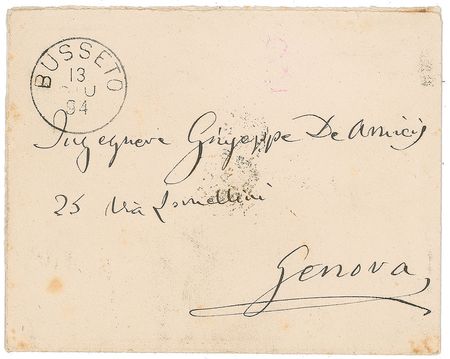 BUSSETO
13
GIU
94
Ingegnere Giuseppe De Amicis
25 Via Lomellini
Genova